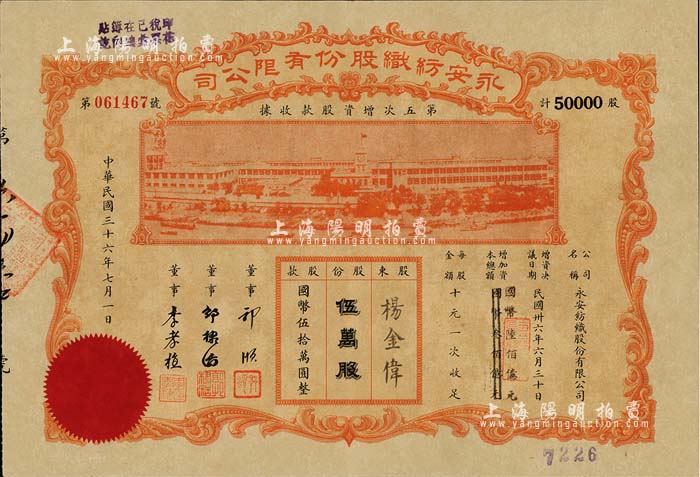 印稅已在簿貼
上海陽明拍賣
www.yangmingauction.com
永安紡織股份有限公司
第061467號
計50000股
第五次增資股款收據
上海陽明拍賣
www.yangmingauction.com
公司名稱 永安紡織股份有限公司
增資決議日期 民國卅六年六月三十日
增加資本總額 國幣陸佰億元
國幣叁佰億元
每股金額 十元一次收足
股東 楊金偉
股份 伍萬股
股款 國幣伍拾萬圓整
董事
董事
董事 李孝植
中華民國三十六年七月一日
上海陽明拍賣
www.yangmingauction.com
7226